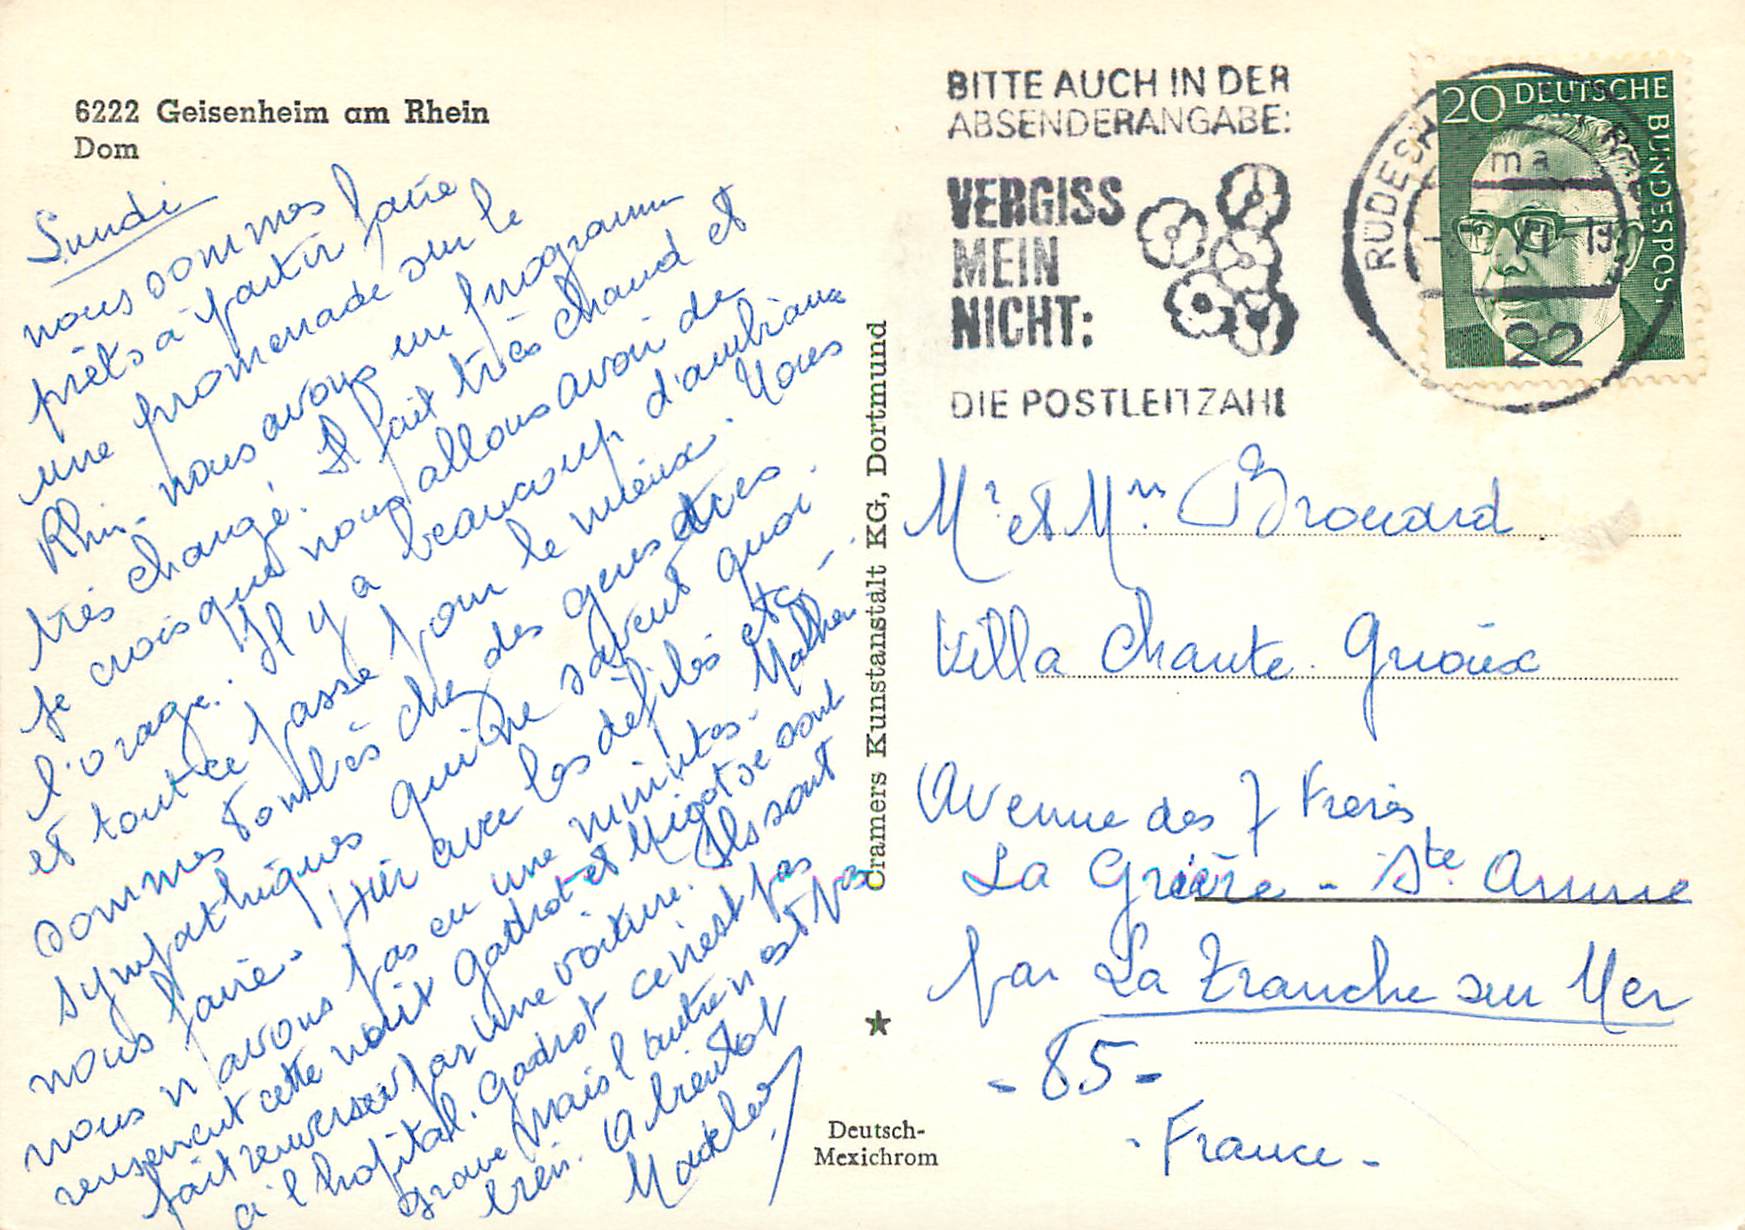 6222 Geisenheim am Rhein
Dom
Lundi
nous sommes
prêts à partir faire
une promenade sur le
Rhin - nous avons un programme
très changé. Il fait très chaud et
je crois que nous allons avoir de
l'orage. Il y a beaucoup d'ambiance
et tout ce passe pour le mieux. Nous
sommes tombés chez des gens très
sympathiques qui ne savent quoi
nous faire - Hier avec les défilés etc -
nous n'avons pas eu une minutes - Malheu
reusement cette nuit Gadrat et Migot se sont
fait renverser par une voiture. Ils sont
à l'hopital. Gadrat ce n'est pas
grave mais l'autre n'est pas
bien. A bientot
BITTE AUCH IN DER
ABSENDERANGABE:
VERGISS
MEIN
NICHT:
DIE POSTLEITZAHL
RÜDESH
ma
22
20 DEUTSCHE
BUNDESPOST
Mr et Mm Brouard
Villa Chante. Grioux
Avenue des 7 Freres
La Grière - Ste Anne
par La Tranche sur Mer
- 85 -
- France -
Cramers Kunstanstalt KG, Dortmund
Deutsch-
Mexichrom